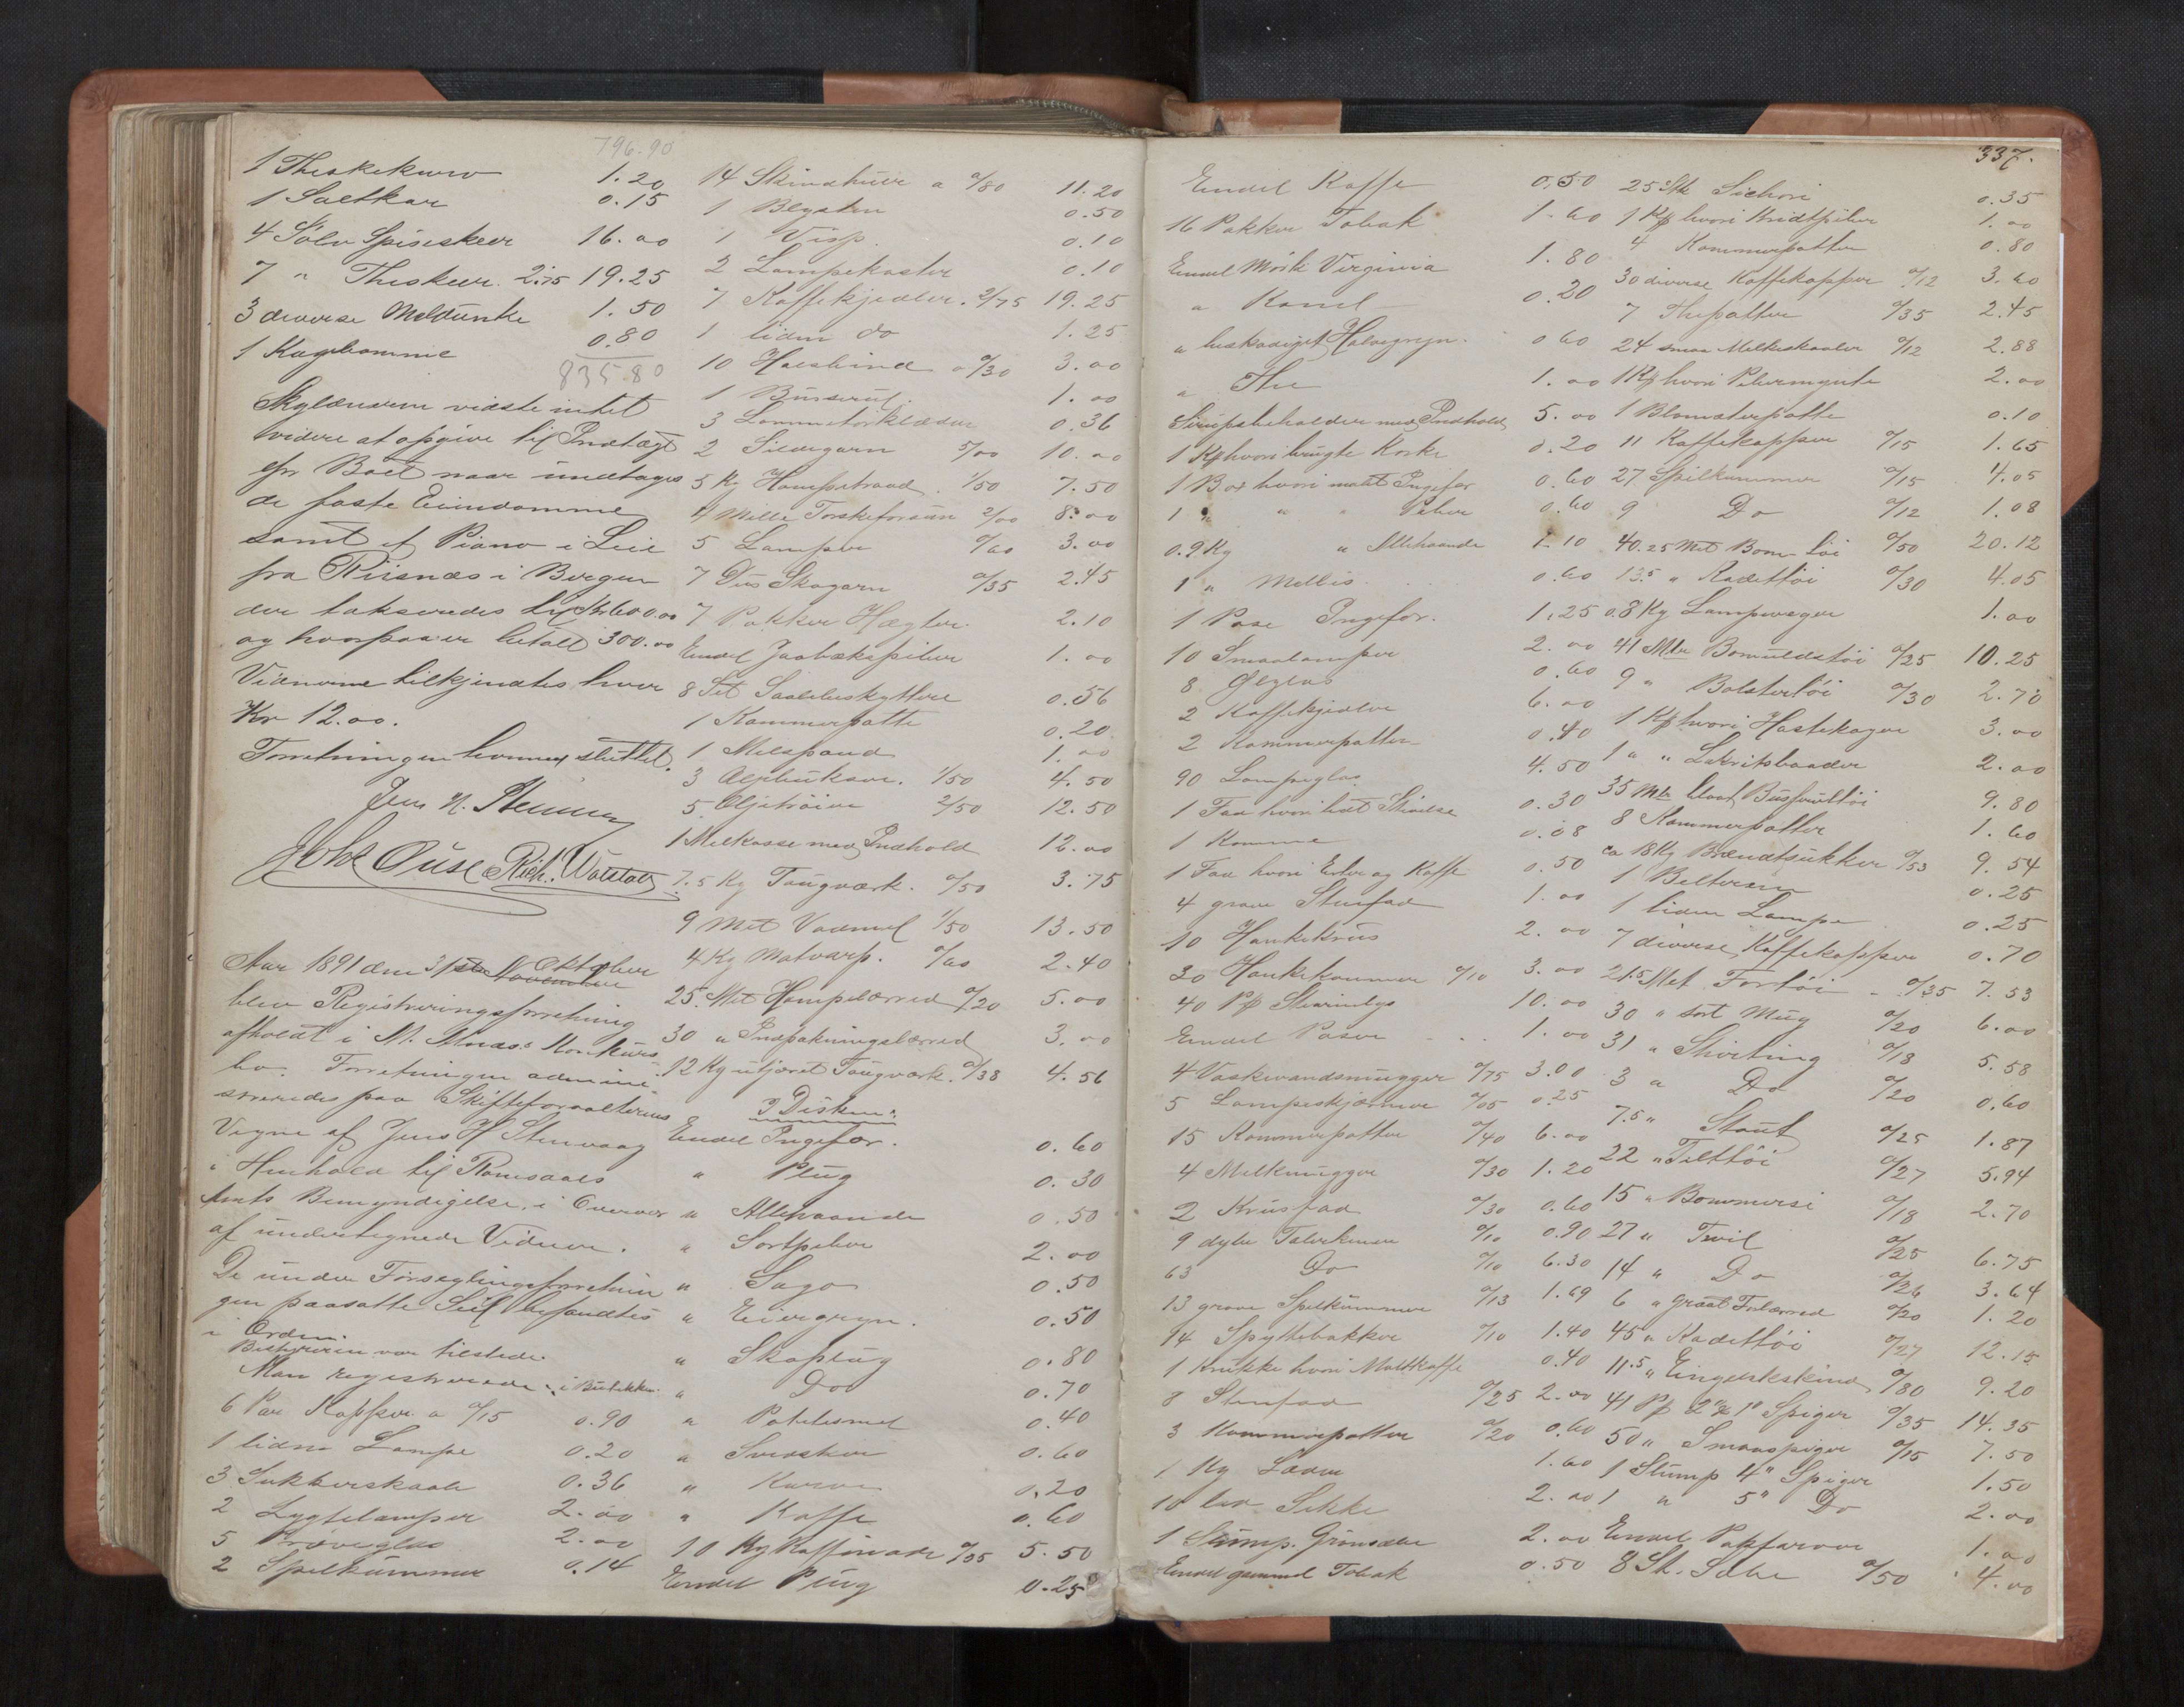 796.90
1 Theskekurv 1.20
1 Saltkar 0.15
4 Sølv Spiseskeer 16.00
7 " Theskeer 2.75 19.25
3 diverse Meldunke 1.50
1 Kagebomme 0.80
835.80
Skyldneren vidste intet
videre at opgive til Indtægt
for Boet naar undtages
de faste Eiendomme
samt et Piano i Leie
fra Riisnæs i Bergen
der takseredes til Kr 600.00
og hvorpaa er betalt 300.00
Vidnerne tilkjendtes hver
Kr 12.00.
Forretningen hermed sluttet.
Jens H.
Johs Ouse Rich.
Aar 1891 den 31te Oktober
November
blev Registreringsforretning
afholdt i M. Konkurs
bo. Forretningen admini
streredes paa Skifteforvalterens
Vegne af Jens H Stenvaag
i Henhold til Romsdals
Amts Bemyndigelse, i Overvær
af undertegnede Vidner.
De under Forseglingsforretnin
gen paasatte Seil befandtes
i Orden.
Bestyreren var tilstede.
Man registrerede: i Butikken
6 Par Kopper a 0/15 0.90
1 liden Lampe 0.20
3 Sukkerskaale 0.36
2 Lygtelamper 2.00
5 Prøveglas 2.00
2 Spelkummer 0.14
14 Skindhuer a 0/80 11.20
1 Blysten 0.50
1 Visp. 0.10
2 Lampekoster 0.10
7 Kaffekjedler 2/75 19.25
1 liden do 1.25
10 Halsbind a 0/30 3.00
1 Busserul 1.00
3 Lommetørklæder 0.36
2 Sildegarn 5/00 10.00
5 Kg Hampetraad 1/50 7.50
4 Mille Torskeforsün 2/00 8.00
5 Lamper 0/60 3.00
7 Dus Skogarn 0/35 2.45
7 Pakker Hægter 2.10
Endel 1.00
8 Set 0.56
1 Kammerpotte 0.20
1 Melspand 1.00
3 Oljebukser. 1/50 4.50
5 Oljetrøier 2/50 12.50
1 Melkasse med Indhold 12.00
7.5 Kg Taugværk. 0/50 3.75
9 Met Vadmel 1/50 13.50
4 Kg Notvarp. 0/60 2.40
25 Met Hampelærred 0/20 5.00
30 " Indpakningslærred 3.00
12 Kg utjæret Taugværk. 0/38 4.56
I Disken:
Endel Ingefær. 0.60
" Plug 0.30
" Allehaande 0.50
" Sortpeber 2.00
" Sago 0.50
" Eiergryn. 0.50
" Skaplug 0.80
" Do 0.70
" Potetesmel 0.40
" Svedsker 0.60
" Karve 0.20
" Kaffe 0.60
10 Kg Raffinade 0/55 5.50
Endel Plug 0.25
337.
Endel Kaffe 0.50
16 Pakker Tobak 1.60
Endel Mørk Virginia 1.80
" Kanel 0.20
" beskadiget Havregryn. 0.60
" The 1.00
Sirupsbeholder med Indhold 5.00
1 Kp hvori brugte Korke 0.20
1 Box hvori malet Ingefær 0.60
1 " " " Peber 0.60
0.9 Kg " Allehaande 1.10
1 " Mellis 0.60
1 Pose Ingefær. 1.25
10 Smaalamper 2.00
8 0.60
2 Kaffekjedler 6.00
2 Kammerpotter 0.40
90 Lampeglas 4.50
1 Fad hvori lidt Stivelse 0.30
1 Komme 0.08
1 Fad hvori Erter og Kaffe 0.50
4 grove Stenfad 1.00
10 Hankekrus 2.00
30 Hankekummer 0/10 3.00
40 Pp Stearinlys 10.00
Endel Poser 1.00
4 Vaskevandsmugger 0/75 3.00
5 Lampeskjærmer 0/05 0.25
15 Kammerpotter 0/40 6.00
4 Melkmugger 0/30 1.20
2 Krusfad 0/30 0.60
9 dybe Talerkener 0/10 0.90
63 Do 0/10 6.30
13 grove Spelkummer 0/13 1.69
14 Spyttebakker 0/10 1.40
1 Krukke hvori Maltkaffe 0.40
8 Stenfad 0/25 2.00
3 Kammerpotter 0/20 0.60
1 Kg Læder 1.60
10 lær Sekke 2.00
1 Stump. Grønsæbe 2.00
Endel gammel Tobak 0.50
25 Stk Sichori 0.35
1 Kp hvori Kridtpiber 1.00
4 Kammerpotter 0.80
30 diverse Kaffekopper 0/12 3.60
7 Thepotter 0/35 2.45
24 smaa Melkeskaaler 0/12 2.88
1 Kp hvori Pebermynte 2.00
1 Blomsterpotte 0.10
11 Kaffekopper 0/15 1.65
27 Spilkummer 0/15 4.05
9 Do 0/12 1.08
40.25 Met Bom. tøi 0/50 20.12
13.5 " Kadettøi 0/30 4.05
0.8 Kg Lampevæger 1.00
41 Mtr Bomuldstøi 0/25 10.25
9 " Bolstertøi 0/30 2.70
1 Kp hvori Hostekager 3.00
1 " " 2.00
35 Mtr blaat Busseroltøi 9.80
8 Kammerpotter 1.60
ca 18 Kg Brændtsukker 0/53 9.54
1 Belterem 0.25
1 liden Lampe 0.25
7 diverse Kaffekopper 0.70
21.5 Met Fortøi 0/35 7.53
30 " sort Mug 0/20 6.00
31 " Shirting 0/18 5.58
3 " Do 0/20 0.60
7.5 " Stout 0/25 1.87
22 " Telttøi 0/27 5.94
15 " Bommersi 0/18 2.70
27 " Tvil 0/25 6.75
14 " Do 0/26 3.64
6 " graat Forlærred 0/20 1.20
45 " Kadettøi 0/27 12.15
11.5 " Eingelskskind 0/80 9.20
41 Pp 2" & 1" Spiger 0/35 14.35
50 " Smaaspiger 0/15 7.50
1 Stump 4" Spiger 1.50
1 " 5" Do 2.00
Endel Papfarver 1.00
8 St. Sæbe 0/50 4.00